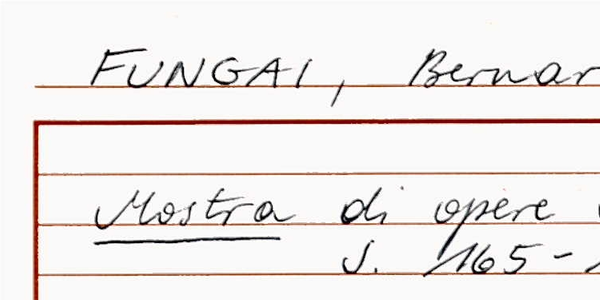 FUNGAI, Bernar
Mostra di opere
S. 165-